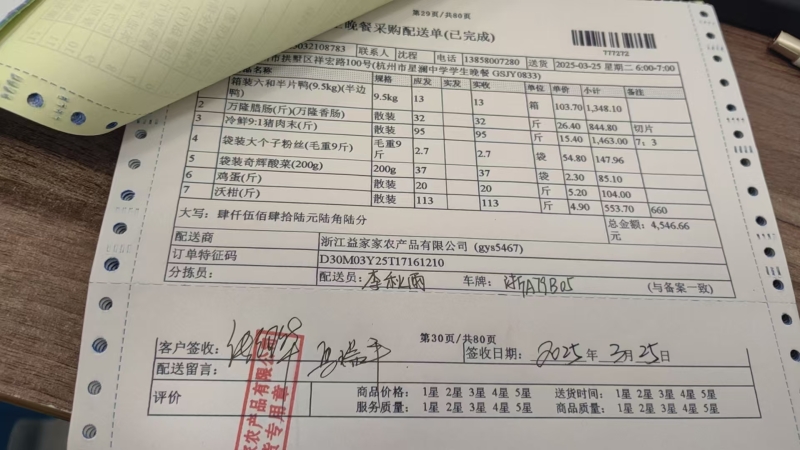 第29页/共80页
晚餐采购配送单(已完成)
777272
5032108783 联系人 沈程 电话 13858007280 送货 2025-03-25 星期二 6:00-7:00
市拱墅区祥宏路100号(杭州市星澜中学学生晚餐 GSJY0833)
名称 规格 应发 实发 实收 单位 单价 小计 备注
箱装六和半片鸭(9.5kg)(半边鸭) 9.5kg 13 13 箱 103.70 1,348.10
2 万隆腊肠(斤)(万隆香肠) 散装 32 32 斤 26.40 844.80 切片
3 冷鲜9:1猪肉末(斤) 散装 95 95 斤 15.40 1,463.00 7；3
4 袋装大个子粉丝(毛重9斤) 毛重9斤 2.7 2.7 袋 54.80 147.96
5 袋装奇辉酸菜(200g) 200g 37 37 袋 2.30 85.10
6 鸡蛋(斤) 散装 20 20 斤 5.20 104.00
7 沃柑(斤) 散装 113 113 斤 4.90 553.70 660
大写: 肆仟伍佰肆拾陆元陆角陆分 总金额: 4,546.66元
配送商 浙江益家家农产品有限公司 (gys5467)
订单特征码 D30M03Y25T17161210
分拣员: 配送员: 李秋雨 车牌: 浙A79B05 (与备案一致)
第30页/共80页
客户签收: 签收日期: 2025年3月25日
配送留言:
评价 商品价格: 1星 2星 3星 4星 5星 送货时间: 1星 2星 3星 4星 5星
服务质量: 1星 2星 3星 4星 5星 商品质量: 1星 2星 3星 4星 5星
农产品有限公
货专用章